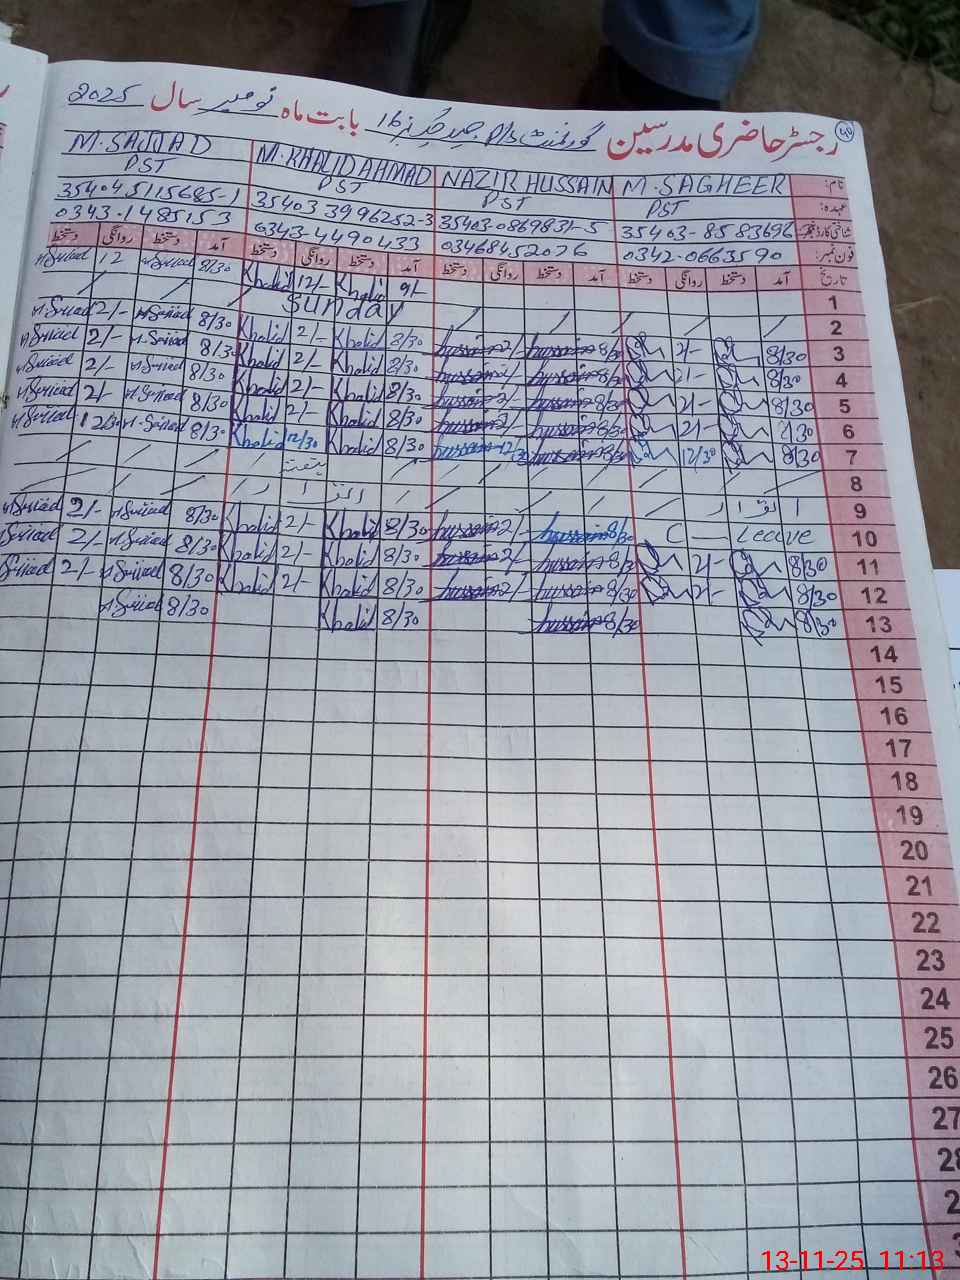 40
رجسٹر حاضری مدرسین گورنمنٹ P/S 16 بابت ماہ نومبر سال 2025
نام: M. SAGHEER NAZIR HUSSAIN M. KHALID AHMAD M. SAJJAD
عہدہ: PST PST PST PST
شناختی کارڈ نمبر 35403-8583696- 35403-0869831-5 35403 3996252-3 35404.5115685-1
فون نمبر: 0342.0663590 03468452076 0343-4490433 0343.1485153
تاریخ آمد دستخط روانگی دستخط آمد دستخط روانگی دستخط آمد دستخط روانگی دستخط آمد دستخط روانگی دستخط
1 9/- Khalid 12/- Khalid 8/30 M.Sajjad 12 M.Sajjad
2 Sunday
3 8/30 2/- 8/30 hussain 2/- hussain 8/30 Khalid 2/- Khalid 8/30 M.Sajjad 2/- M.Sajjad
4 8/30 2/- 8/30 hussain 2/- hussain 8/30 Khalid 2/- Khalid 8/30 M.Sajjad 2/- M.Sajjad
5 8/30 2/- 8/30 hussain 2/- hussain 8/30 Khalid 2/- Khalid 8/30 M.Sajjad 2/- M.Sajjad
6 8/30 2/- 8/30 hussain 2/- hussain 8/30 Khalid 2/- Khalid 8/30 M.Sajjad 2/- M.Sajjad
7 8/30 12/30 8/30 hussain 12/30 hussain 8/30 Khalid 12/30 Khalid 8/30 M.Sajjad 12/30 M.Sajjad
8 ہفتہ
9 اتوار اتوار
10 Leave 8/30 hussain 2/- hussain 8/30 Khalid 2/- Khalid 8/30 M.Sajjad 2/- M.Sajjad
11 8/30 2/- 8/30 hussain 2/- hussain 8/30 Khalid 2/- Khalid 8/30 M.Sajjad 2/- M.Sajjad
12 8/30 2/- 8/30 hussain 2/- hussain 8/30 Khalid 2/- Khalid 8/30 M.Sajjad 2/- M.Sajjad
13 8/30 8/30 hussain 8/30 Khalid 8/30 M.Sajjad
14
15
16
17
18
19
20
21
22
23
24
25
26
27
28
13-11-25 11:13